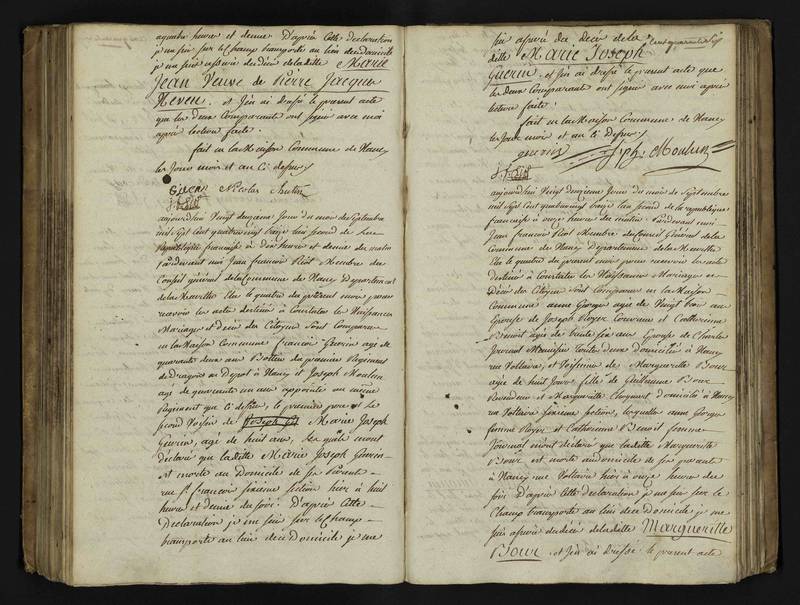 aquatre heures et demie D'après Cette declaration
je me suis sur le Champ transporté au lieu du domicile
je me suis assurée du décès de ladite Marie
Jean Veuve de Pierre Jacques
Neveu. et J'en ai Dressé le présent acte
que les deux Comparants ont signé avec moi
après lecture faite.
fait en la Maison Commune de Nancy
les Jour mois et an Ci dessus
Nicolas
aujourdhui Vingt deuxieme Jour du mois de Septembre
mil Sept Cent quatre vingt treize l'an second de la
République française à Dix heures et demie du matin
pardevant moi Jean François Membre du
Conseil général de la Commune de Nancy Département
de la Meurthe Elu le quatre du présent mois pour
recevoir les actes destinés à Constater les Naissances
Mariages et Décès des Citoyens Sont Comparus
en la Maison Commune françois Guerin agé de
quarante deux ans du premier Régiment
de Dragons au Dépot à Nancy et Joseph Moulin
agé de quarante un ans appointé au même
Régiment que Ci dessus, le premier pere et Le
second Voisin de Marie Joseph
Guerin, agée de huit ans, Lesquels mont
déclaré que ladite Marie Joseph Guerin
est morte au Domicile de ses Parents
rue St. françois sixieme section hier à huit
heures et demie du soir D'après Cette
Declaration je me suis sur le Champ
transporté au lieu du Domicile je me
suis assuré du Décès de la
dite Marie Joseph
Guerin. et J'en ai dressé le présent acte que
les deux Comparants ont signé avec moi après
lecture faite.
fait en la Maison Commune de Nancy
les Jour mois et an Ci Dessus
guerin Jph. Moulin
aujourdhui Vingt deuxieme Jour du mois de Septembre
mil Sept Cent quatrevingt treize l'an second de la république
française à onze heures du matin Pardevant moi
Jean François Membre du Conseil Général de la
Commune de Nancy département de la Meurthe
Elu le quatre du présent mois pour recevoir les actes
destinés à Constater les Naissances Mariages et
Décès des Citoyens Sont Comparus en la Maison
Commune anne George agée de Vingt
Epouse de Joseph Royer et Catherine
Benoit agée de trente six ans Epouse de Charles
Journal Menuisier toutes deux domiciliées à Nancy
rue Voltaire, et Voisines de Marguerite Bour
agée de huit Jours fille de Guillaume Bour
et Marguerite domiciliés à Nancy
rue Voltaire sixieme section, lesquelles anne George
femme Royer et Catherine Benoit femme
Journal mont déclaré que ladite Marguerite
Bour est morte au domicile de ses parents
à Nancy rue Voltaire hier à onze heures du
soir D'après Cette déclaration je me suis sur le
Champ transporté au lieu du domicile je me
suis assuré du décès de ladite Marguerite
Bour. et J'en ai Dressé le présent acte